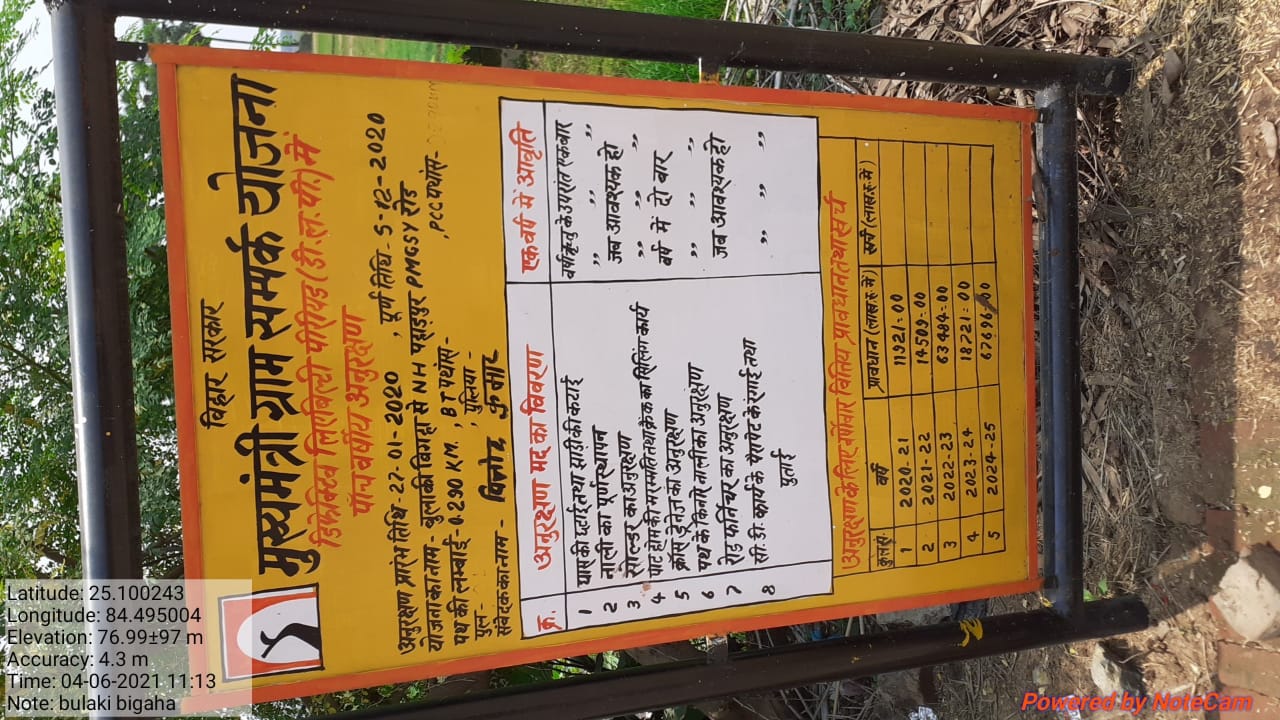 बिहार सरकार
मुख्यमंत्री ग्राम सम्पर्क योजना
डिफेक्टिव लियबिलिटी पीरियड (डी.ल.पी.) में
पाँच वर्षीय अनुरक्षण
अनुरक्षण प्रारंभ तिथि- 27-01-2020 , पूर्ण तिथि- 5-12-2020
योजना का नाम- बुलाकी बिगहा से NH पहाड़पुर PMGSY रोड
पथ की लम्बाई- 0.290 KM. , BT पथांस- , PCC पथांस-
पुल- , पुलिया-
संवेदक का नाम - विनोद कुमार
क्र. अनुरक्षण मद का विवरण एक वर्ष में आवृति
1 घास की छटाई तथा झाड़ी की कटाई वर्षा ऋतु के उपरांत एक बार
2 नाली का पूर्णस्थापन " " "
3 सोल्डर का अनुरक्षण जब आवश्यक हो
4 पाट होम की मरम्मति तथा क्रैक का सिलिंग कार्य " " "
5 क्रॉस ड्रेनेज का अनुरक्षण वर्ष में दो बार
6 पथ के किनारे नाली का अनुरक्षण " " "
7 रोड फर्निचर का अनुरक्षण जब आवश्यक हो
8 सी.डी. कार्य के पैरापेट के रंगाई तथा " " "
पुताई
अनुरक्षण के लिए वर्षवार वित्तिय प्रावधान तथा खर्च
वर्ष प्रावधान (लाख रू. में) खर्च (लाख रू. में)
1 2020-21 11921=00
2 2021-22 14509=00
3 2022-23 63484=00
4 2023-24 18721=00
5 2024-25 67696=00
Latitude: 25.100243
Longitude: 84.495004
Elevation: 76.99±97 m
Accuracy: 4.3 m
Time: 04-06-2021 11:13
Note: bulaki bigaha
Powered by NoteCam